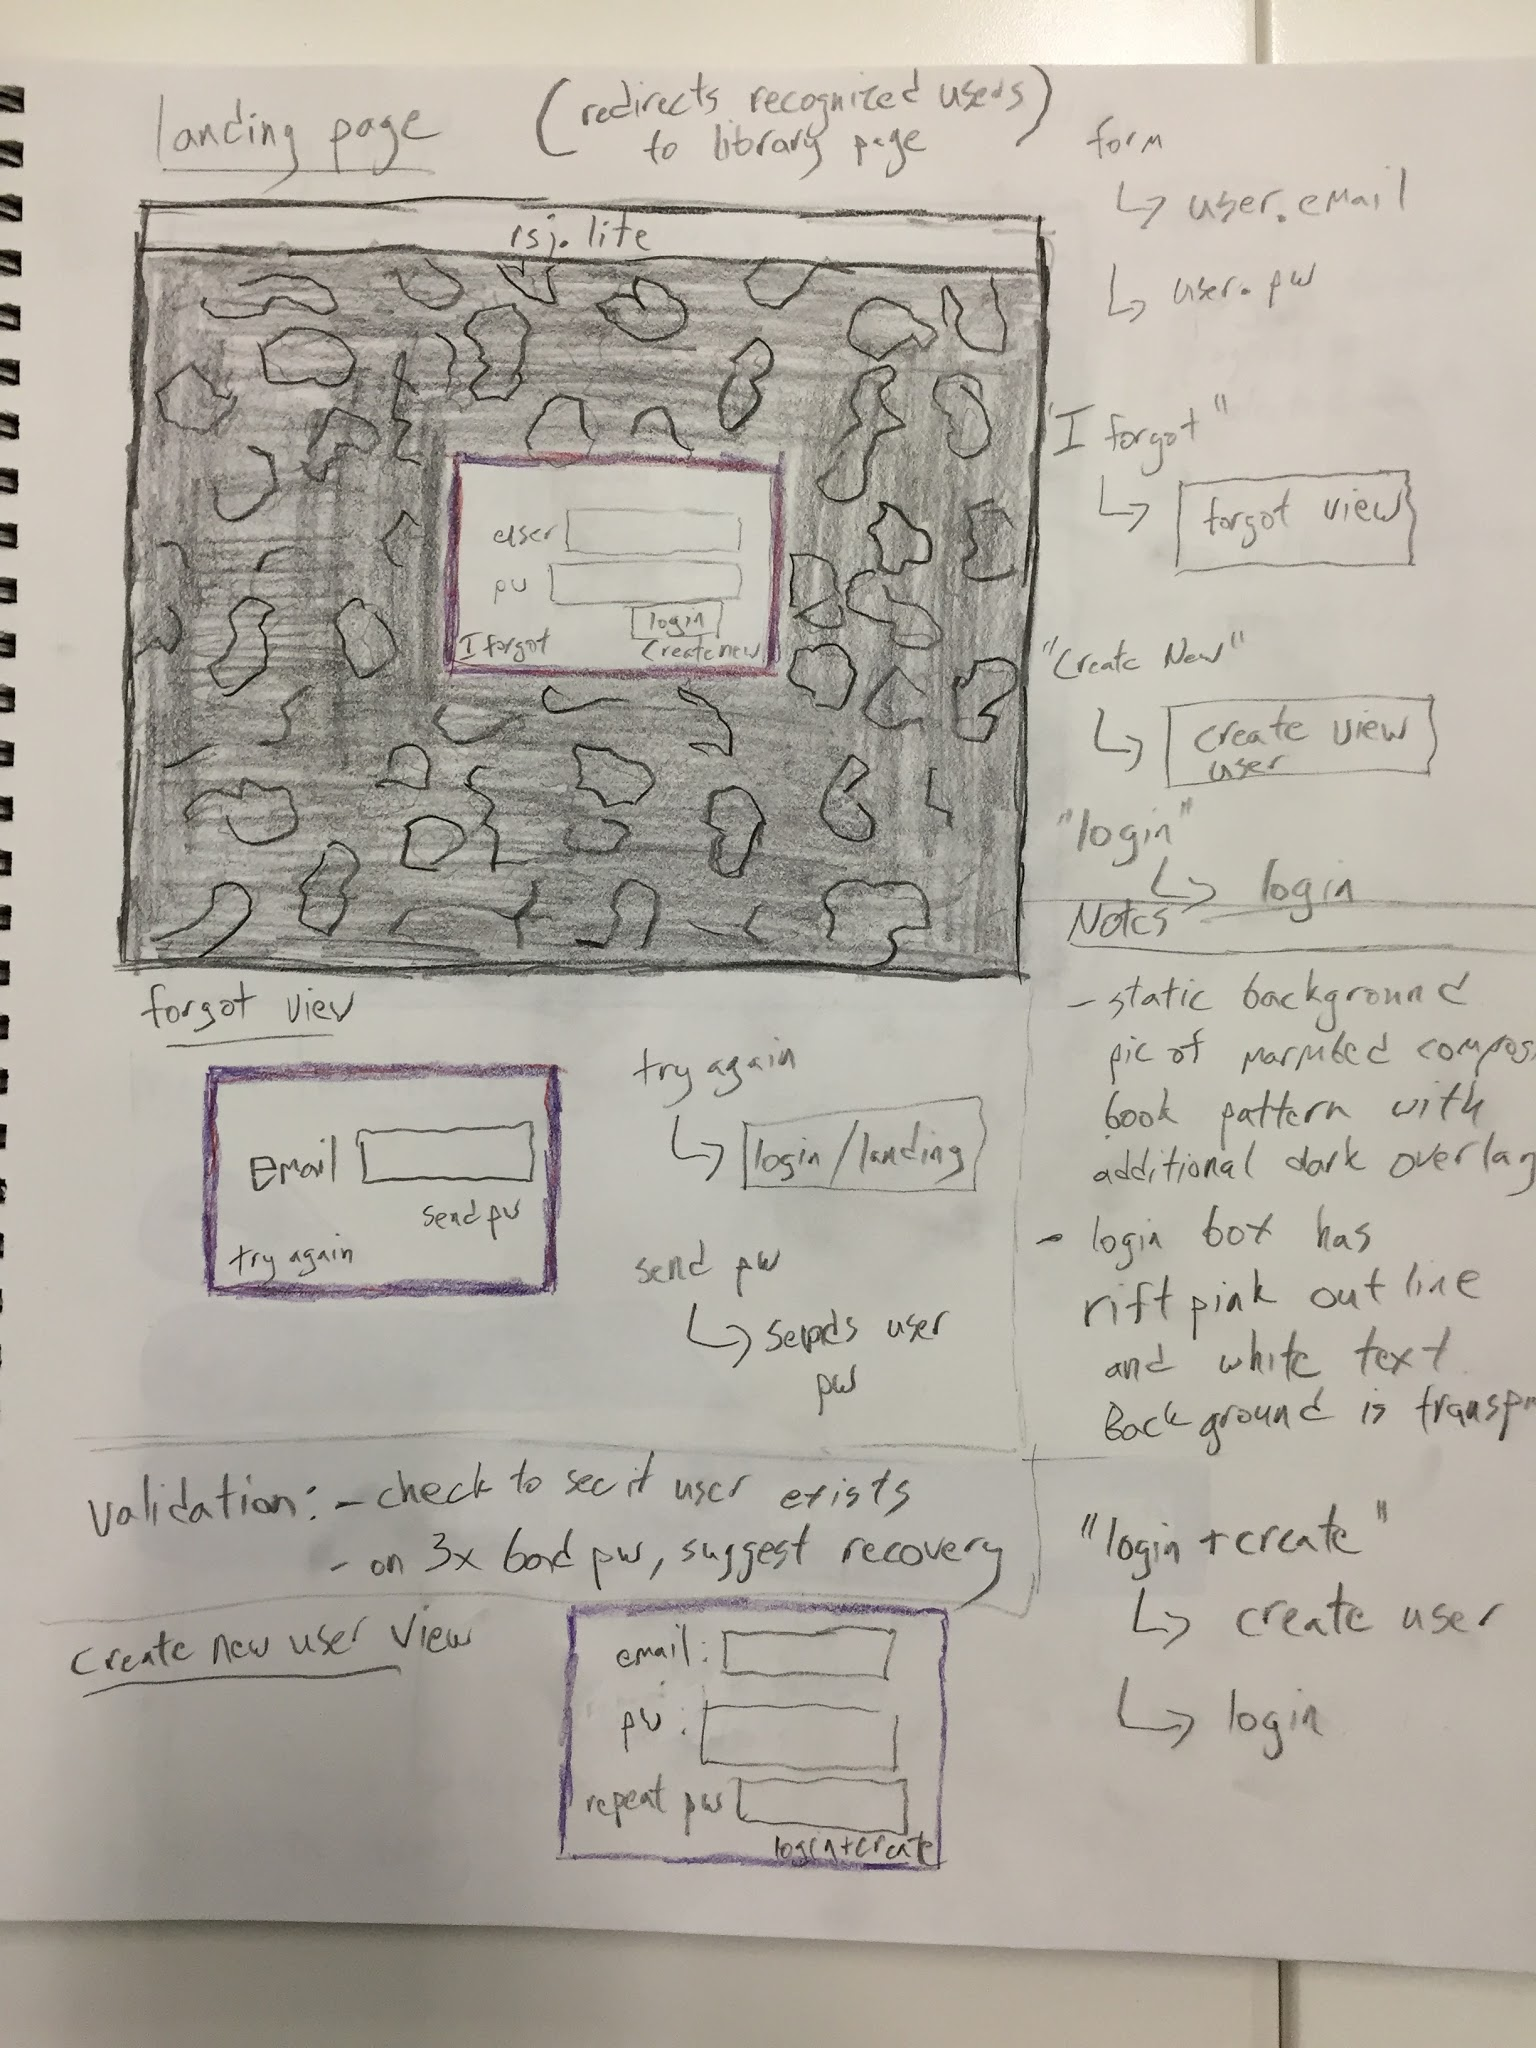 landing page
(redirects recognized users
to library page)
rsj.lite
user
pw
login
I forgot
Create new
form
↳ user.email
↳ user.pw
"I forgot"
↳ forgot view
"Create New"
↳ create view
user
"login"
↳ login
Notes
- static background
pic of
book pattern with
additional dark overlay
- login box has
rift pink outline
and white text
Background is
forgot view
Email
send pw
try again
try again
↳ login/landing
send pw
↳ sends user
pw
Validation: - check to see if user exists
- on 3x bad pw, suggest recovery
Create new user view
email:
pw:
repeat pw
login+create
"login + create"
↳ create user
↳ login